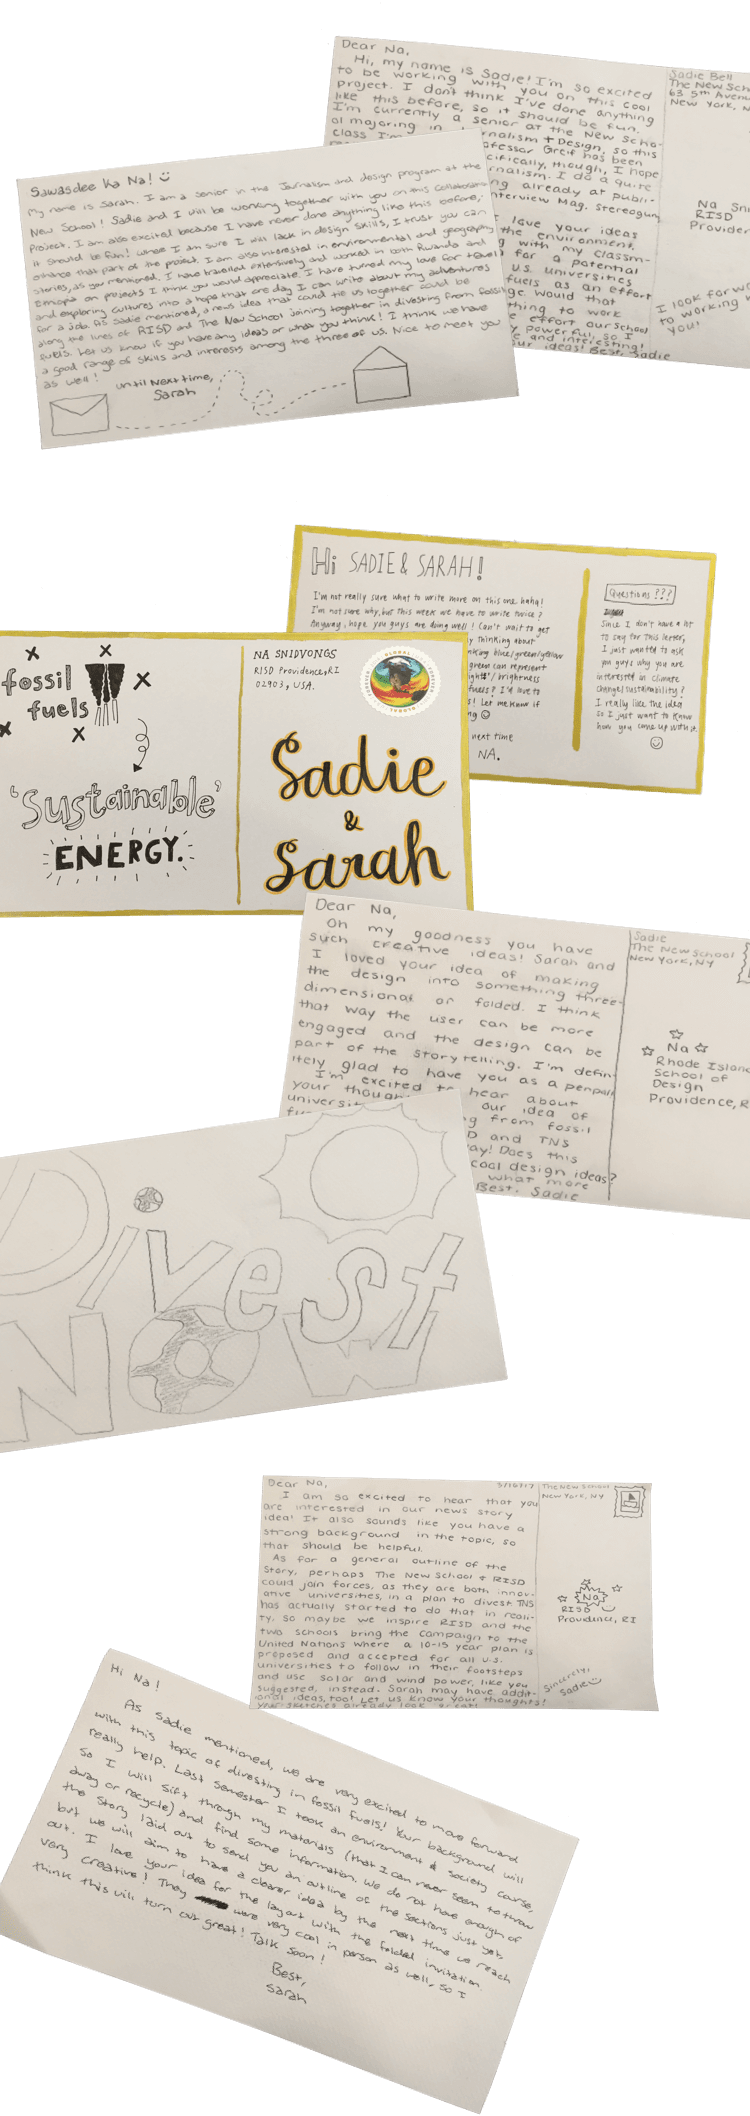 Dear Na,
Hi, my name is Sadie! I'm so excited
to be working with you on this cool
project. I don't think I've done anything
like this before, so it should be fun.
I'm currently a senior at the New Scho-
ol majoring in rnalism + Design, so this
class I'm ofessor Greif has been
cifically, though, I hope
rnalism. I do a quite
ng already at publi-
nterview Mag, Stereogum
I love your ideas
the environment.
g with my classm-
for a potential
U.S. universities
fuels as an effort
ge. Would that
thing to work
e effort our school
y powerful, so I
e and interesting!
ur ideas! Best, Sadie
Sadie Bell
The New Sch
63 5th Avenu
New York, N
Na Sni
RISD
Provider
I look forwa
to working w
you!
Sawasdee Ka Na!
My name is Sarah. I am a senior in the Journalism and design program at the
New School! Sadie and I will be working together with you on this collaboration
Project. I am also excited because I have never done anything like this before,
it should be fun! Where I am sure I will lack in design skills, I trust you can
enhance that part of the project. I am also interested in environmental and geography
stories, as you mentioned. I have travelled extensively and worked in both Rwanda and
Ethiopia on projects I think you would appreciate. I have turned my love for travel
and exploring cultures into a hope that one day I can write about my adventures
for a job. As Sadie mentioned, a news idea that could tie us together could be
along the lines of RISD and The New School joining together in divesting from fossil
fuels. Let us know if you have any ideas or what you think! I think we have
a good range of skills and interests among the three of us. Nice to meet you
as well!
Until Next time,
Sarah
Hi SADIE & SARAH!
I'm not really sure what to write more on this one haha!
I'm not sure why, but this week we have to write twice?
Anyway, hope you guys are doing well! Can't wait to get
y thinking about
nking blue/green/yellow
green can represent
ight/brightness
fuels? I'd love to
s! Let me know if
ng
next time
NA.
Questions ???
Since I don't have a lot
to say for this letter,
I just wanted to ask
you guys why you are
interested in climate
change/sustainability?
I really like the idea
so I just want to know
how you came up with it.
fossil
fuels
'Sustainable'
ENERGY.
NA SNIDVONGS
RISD Providence, RI
02903, USA.
GLOBAL
FOREVER
Sadie
&
Sarah
Dear Na,
Oh my goodness you have
such creative ideas! Sarah and
I loved your idea of making
the design into something three-
dimensional or folded. I think
that way the user can be more
engaged and the design can be
part of the storytelling. I'm defin-
itely glad to have you as a penpal!
I'm excited to hear about
your though our idea of
universit g from fossil
fu D and TNS
ay! Does this
cool design ideas?
what more
Best, Sadie
Sadie
The New School
New York, NY
Na
Rhode Island
School of
Design
Providence, R
Divest
NOW
Dear Na,
I am so excited to hear that you
are interested in our news story
idea! It also sounds like you have a
strong background in the topic, so
that should be helpful.
As for a general outline of the
story, perhaps The New School & RISD
could join forces, as they are both innov-
ative universities, in a plan to divest. TNS
has actually started to do that in reali-
ty. So maybe we inspire RISD and the
two schools bring the campaign to the
United Nations where a 10-15 year plan is
proposed and accepted for all U.S.
universities to follow in their footsteps
and use solar and wind power, like you
suggested, instead. Sarah may have addit-
ional ideas, too! Let us know your thoughts!
Your sketches already look great!
The New School
New York, NY
Na
RISD
Providence, RI
Sincerely,
Sadie
Hi Na!
As Sadie mentioned, we are very excited to move forward
with this topic of divesting in fossil fuels! Your background will
really help. Last semester I took an environment & society course,
so I will sift through my materials (that I can never seem to throw
away or recycle) and find some information. We do not have enough of
the story laid out to send you an outline of the sections just yet,
but we will aim to have a clearer idea by the next time we reach
out. I love your idea for the layout with the folded invitation.
Very creative! They were very cool in person as well, so I
think this will turn out great! Talk soon!
Best,
Sarah